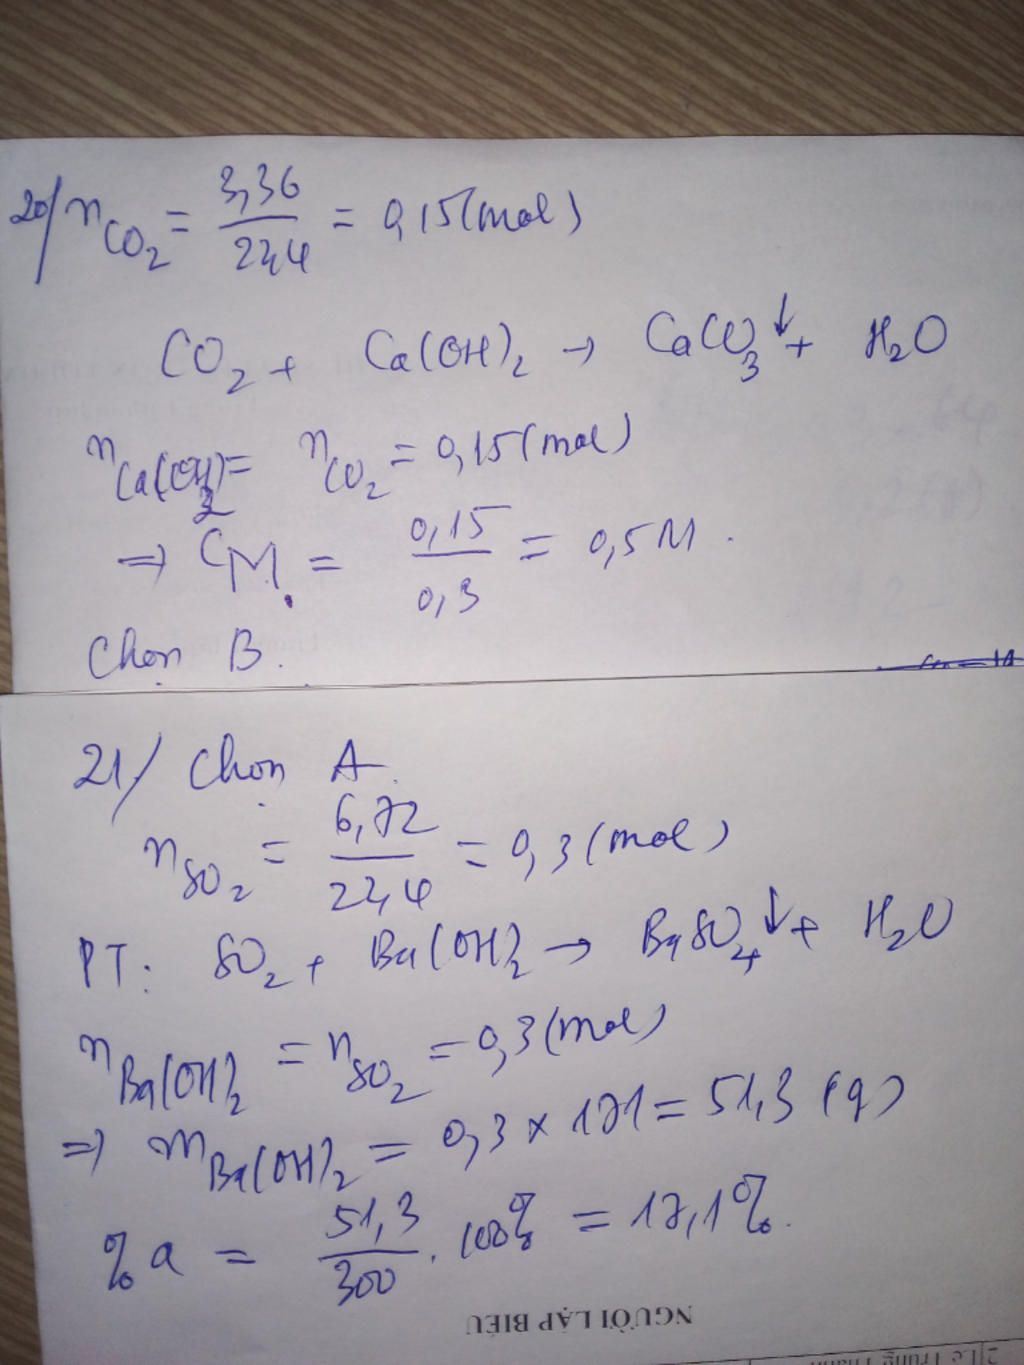 20/ n_CO₂ = 3,36 / 22,4 = 0,15 (mol)
CO₂ + Ca(OH)₂ → CaCO₃↓ + H₂O
n_Ca(OH)₂ = n_CO₂ = 0,15 (mol)
⇒ C_M = 0,15 / 0,3 = 0,5M.
Chọn B.
21/ Chọn A.
n_SO₂ = 6,72 / 22,4 = 0,3 (mol)
PT: SO₂ + Ba(OH)₂ → BaSO₄↓ + H₂O
n_Ba(OH)₂ = n_SO₂ = 0,3 (mol)
⇒ m_Ba(OH)₂ = 0,3 × 171 = 51,3 (g)
%a = 51,3 / 300 . 100% = 17,1%.
NGƯỜI LẬP BIỂU